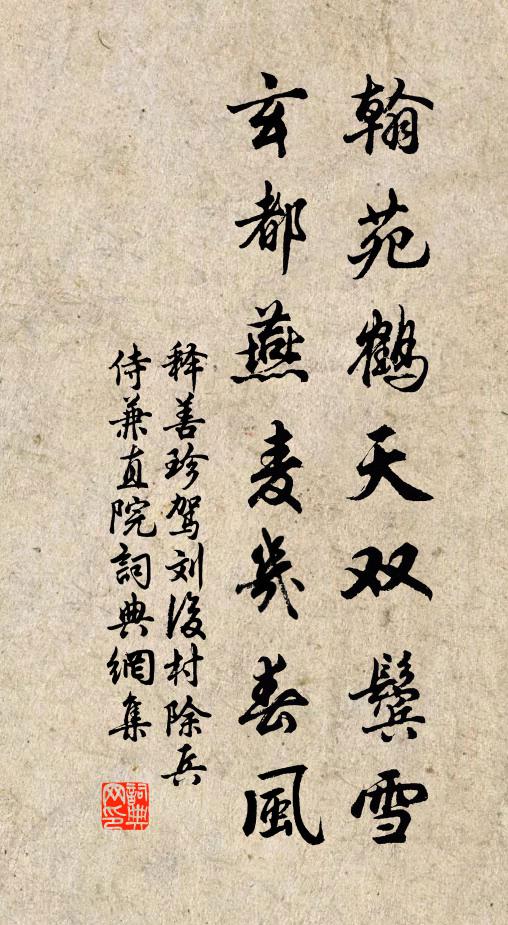 翰苑鶴天双鬢雪
玄都燕麦幾春風
释善珍驾刘後村除兵
侍兼直院詞典網集
詞典网印